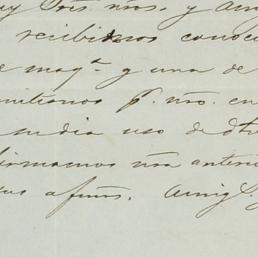 Sres. nros. y Am
recibimos conoci
e maq.ª y una de
mitimos p. nro. en
su dia uso de dho
firmamos nra anteri
sus afmos. Amig